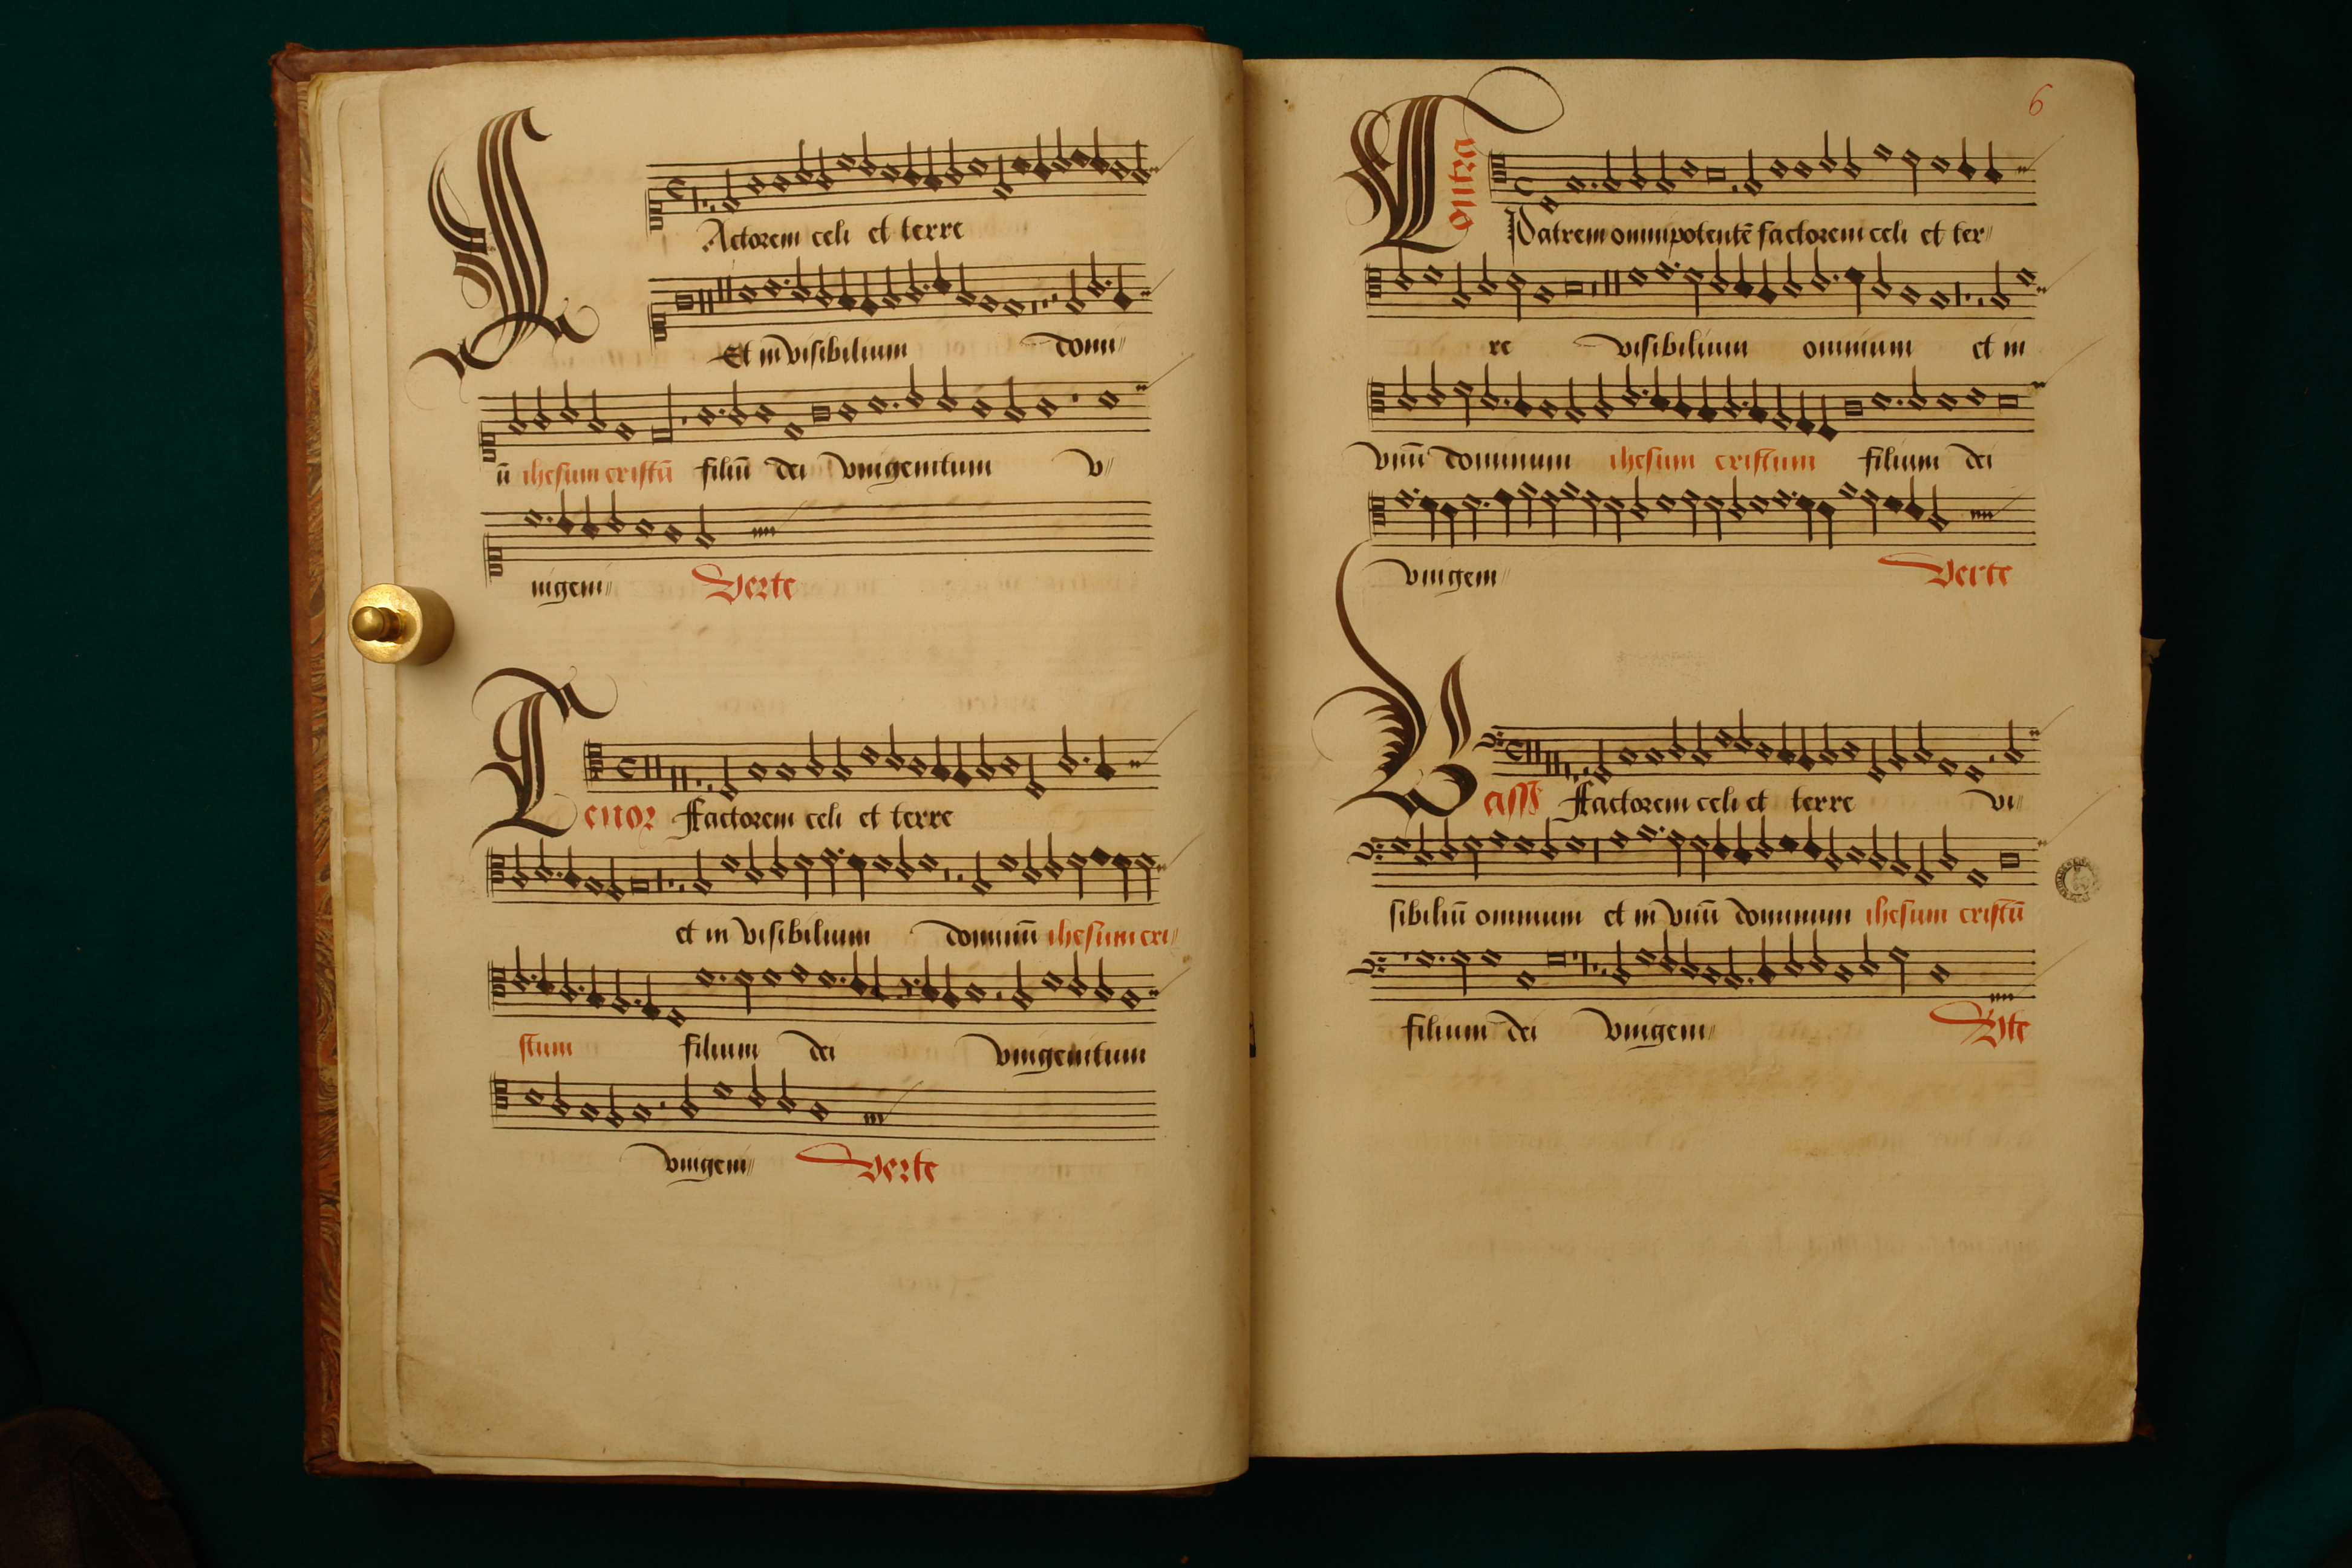 FActorem celi et terre
Et in visibilium domi
ū ihesum cristū filiū dei vnigenitum v
nigeni Verte
Tenor Factorem celi et terre
et in visibilium dominū ihesum cri
stum filium dei vnigenitum
vnigeni Verte
6
Contra
Patrem omnipotentē factorem celi et ter
re visibilium omnium et in
vnū dominum ihesum cristum filium dei
vnigeni Verte
Bass Factorem celi et terre vi
sibiliū omnium et in vnū dominum ihesum cristū
filium dei vnigeni Vte